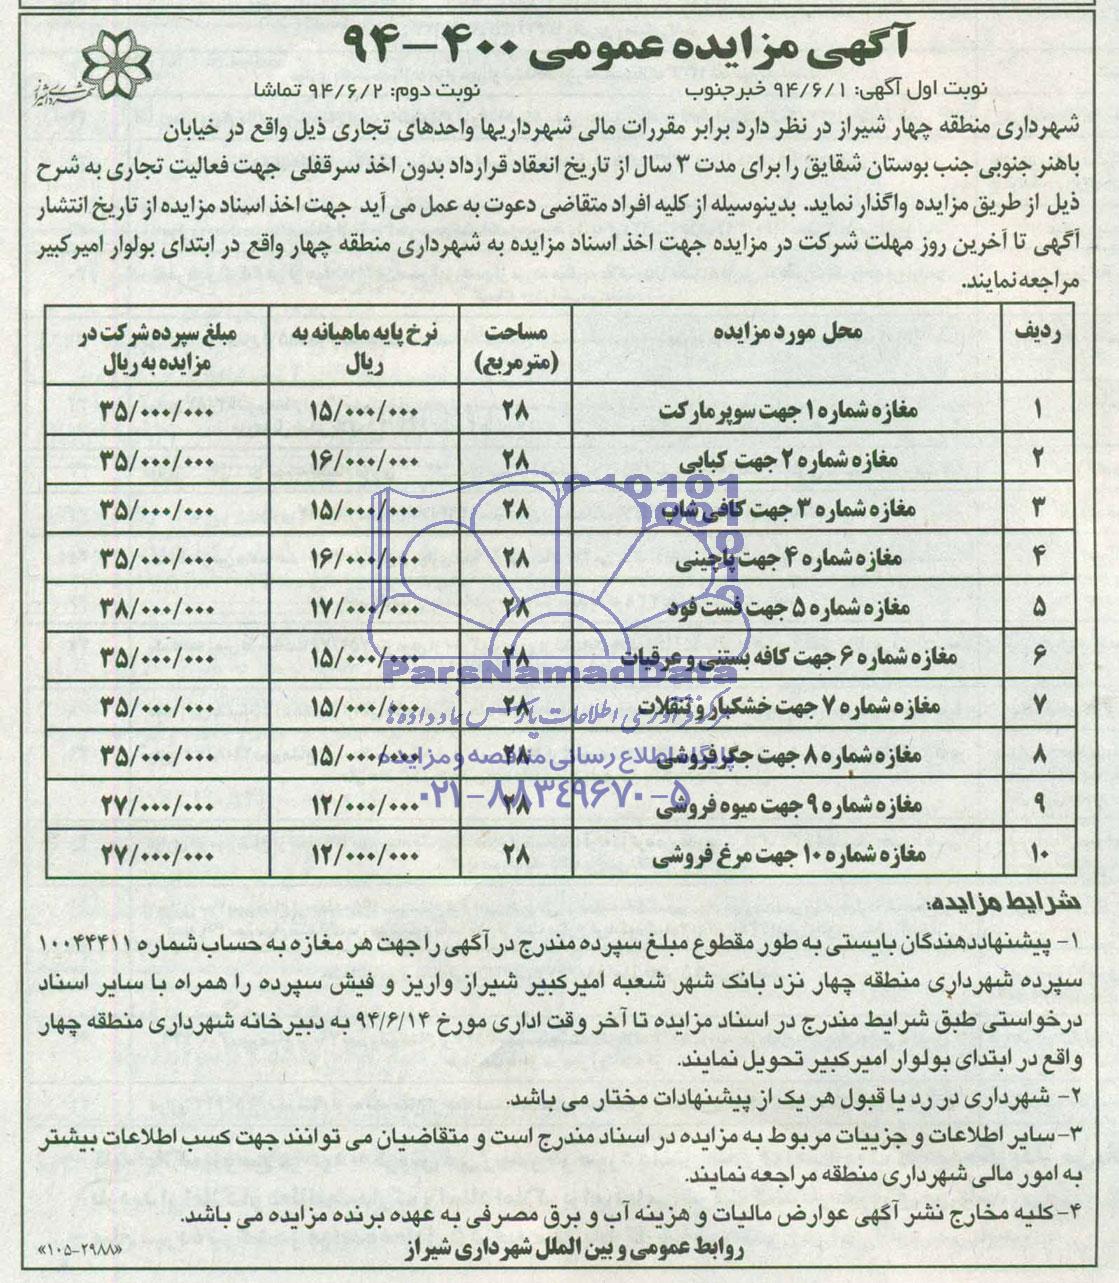 آگهی مزایده عمومی ۴۰۰-۹۴
شهرداری شیراز
نوبت اول آگهی: ۹۴/۶/۱ خبرجنوب نوبت دوم: ۹۴/۶/۲ تماشا
شهرداری منطقه چهار شیراز در نظر دارد برابر مقررات مالی شهرداریها واحدهای تجاری ذیل واقع در خیابان
باهنر جنوبی جنب بوستان شقایق را برای مدت ۳ سال از تاریخ انعقاد قرارداد بدون اخذ سرقفلی جهت فعالیت تجاری به شرح
ذیل از طریق مزایده واگذار نماید. بدینوسیله از کلیه افراد متقاضی دعوت به عمل می آید جهت اخذ اسناد مزایده از تاریخ انتشار
آگهی تا آخرین روز مهلت شرکت در مزایده جهت اخذ اسناد مزایده به شهرداری منطقه چهار واقع در ابتدای بولوار امیرکبیر
مراجعه نمایند.
ردیف محل مورد مزایده مساحت (مترمربع) نرخ پایه ماهیانه به ریال مبلغ سپرده شرکت در مزایده به ریال
۱ مغازه شماره ۱ جهت سوپرمارکت ۲۸ ۱۵/۰۰۰/۰۰۰ ۳۵/۰۰۰/۰۰۰
۲ مغازه شماره ۲ جهت کبابی ۲۸ ۱۶/۰۰۰/۰۰۰ ۳۵/۰۰۰/۰۰۰
۳ مغازه شماره ۳ جهت کافی شاپ ۲۸ ۱۵/۰۰۰/۰۰۰ ۳۵/۰۰۰/۰۰۰
۴ مغازه شماره ۴ جهت پاچینی ۲۸ ۱۶/۰۰۰/۰۰۰ ۳۵/۰۰۰/۰۰۰
۵ مغازه شماره ۵ جهت فست فود ۲۸ ۱۷/۰۰۰/۰۰۰ ۳۸/۰۰۰/۰۰۰
۶ مغازه شماره ۶ جهت کافه بستنی و عرقیات ۲۸ ۱۵/۰۰۰/۰۰۰ ۳۵/۰۰۰/۰۰۰
۷ مغازه شماره ۷ جهت خشکبار و تنقلات ۲۸ ۱۵/۰۰۰/۰۰۰ ۳۵/۰۰۰/۰۰۰
۸ مغازه شماره ۸ جهت جگرفروشی ۲۸ ۱۵/۰۰۰/۰۰۰ ۳۵/۰۰۰/۰۰۰
۹ مغازه شماره ۹ جهت میوه فروشی ۲۸ ۱۲/۰۰۰/۰۰۰ ۲۷/۰۰۰/۰۰۰
۱۰ مغازه شماره ۱۰ جهت مرغ فروشی ۲۸ ۱۲/۰۰۰/۰۰۰ ۲۷/۰۰۰/۰۰۰
ParsNamadData
مرکز فرآوری اطلاعات پارس نماد داده ها
پایگاه اطلاع رسانی مناقصه و مزایده
۰۲۱-۸۸۳۴۹۶۷۰-۵
شرایط مزایده:
۱- پیشنهاددهندگان بایستی به طور مقطوع مبلغ سپرده مندرج در آگهی را جهت هر مغازه به حساب شماره ۱۰۰۴۴۴۱۱
سپرده شهرداری منطقه چهار نزد بانک شهر شعبه امیرکبیر شیراز واریز و فیش سپرده را همراه با سایر اسناد
درخواستی طبق شرایط مندرج در اسناد مزایده تا آخر وقت اداری مورخ ۹۴/۶/۱۴ به دبیرخانه شهرداری منطقه چهار
واقع در ابتدای بولوار امیرکبیر تحویل نمایند.
۲- شهرداری در رد یا قبول هر یک از پیشنهادات مختار می باشد.
۳- سایر اطلاعات و جزییات مربوط به مزایده در اسناد مندرج است و متقاضیان می توانند جهت کسب اطلاعات بیشتر
به امور مالی شهرداری منطقه مراجعه نمایند.
۴- کلیه مخارج نشر آگهی عوارض مالیات و هزینه آب و برق مصرفی به عهده برنده مزایده می باشد.
روابط عمومی و بین الملل شهرداری شیراز
«۱۰۵-۲۹۸۸»